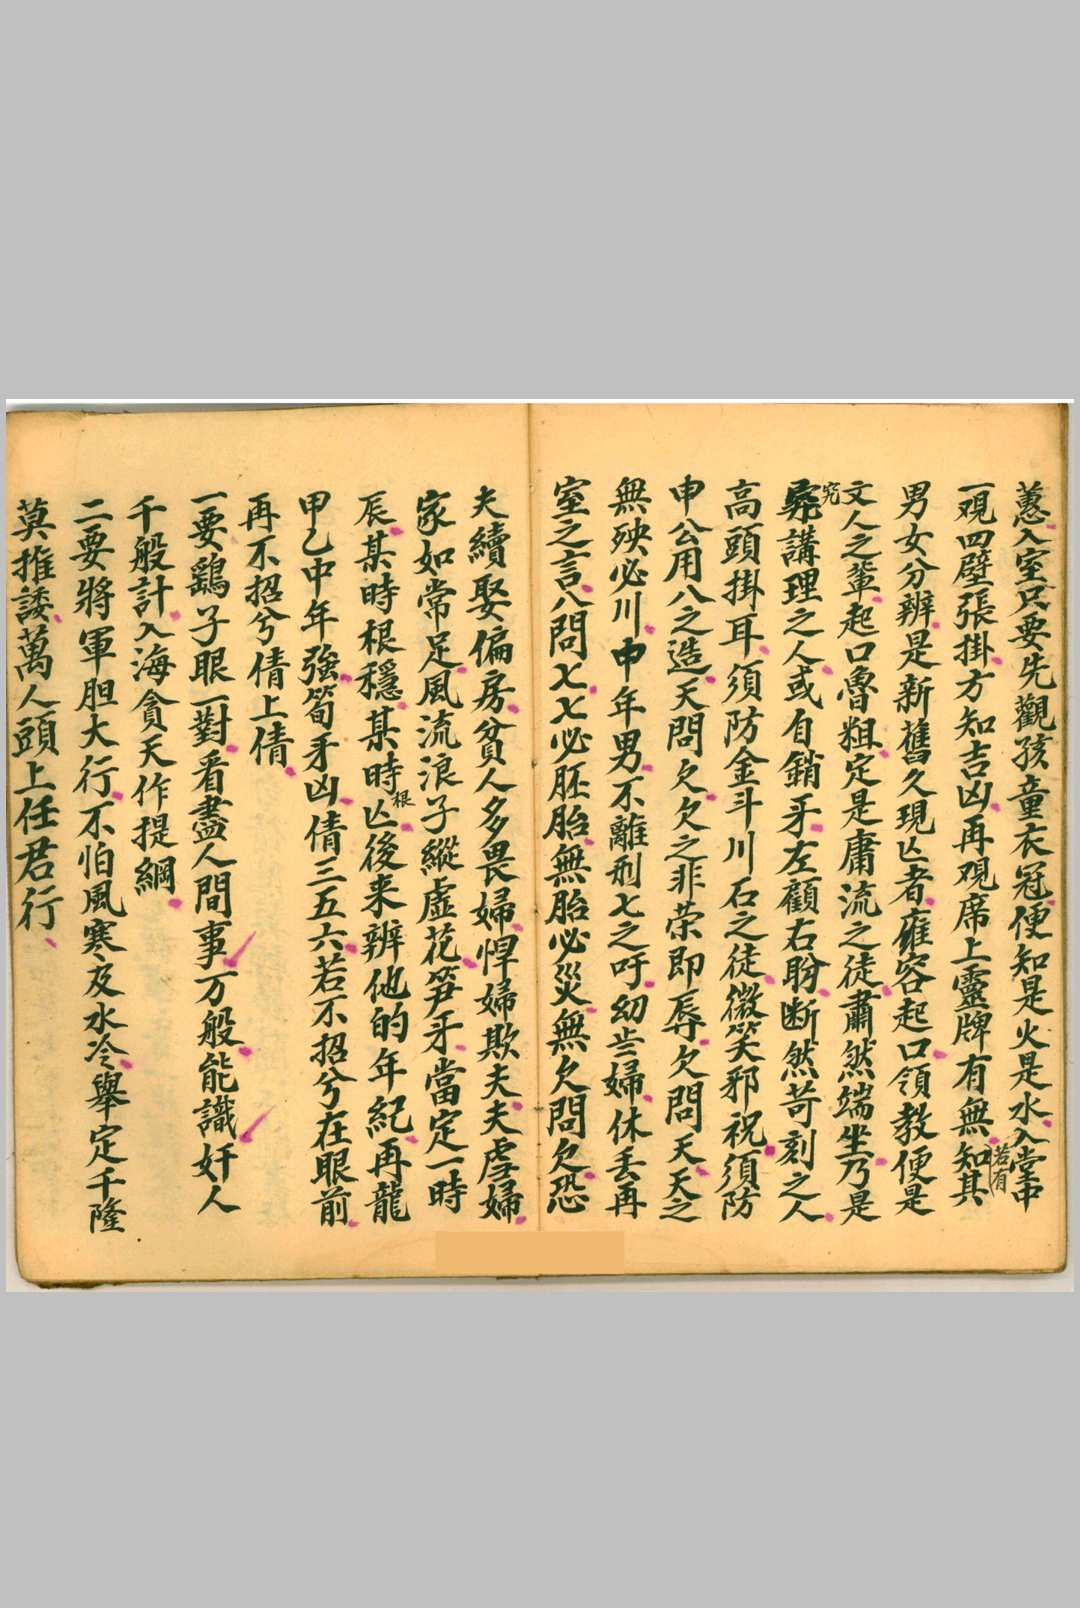 蔥入室只要先觀孩童衣冠便知是火是水入堂中
一观四壁張掛方知吉凶再观席上靈牌有無知其
若有
男女分辨是新舊久現亡者雍容起口領教便是
文人之輩起口魯粗定是庸流之徒肅然端坐乃是
究
講理之人或自銷牙左顧右盼断然苛刻之人
高頭掛耳須防金斗川石之徒微笑邪祝須防
申公用八之造天問欠欠之非荣即辱欠問天天之
無殃必川申年男不離刑七之吁幼些婦休丢再
室之言八問七七必胚胎無胎必災無欠問欠恐
夫續娶偏房貧人多畏婦悍婦欺夫夫虐婦
家如常足風流浪子縱虛花笋牙當定一時
辰某時根穩某時亡後来辨他的年紀再龍
根
甲乙中年強筍牙凶倩三五六若不招兮在眼前
再不招兮倩上倩
一要鷂子眼一對看盡人間事万般能識奸人
千般計入海貪天作提綱
二要將軍胆大行不怕風寒及水冷舉定千隆
莫推諉萬人頭上任君行